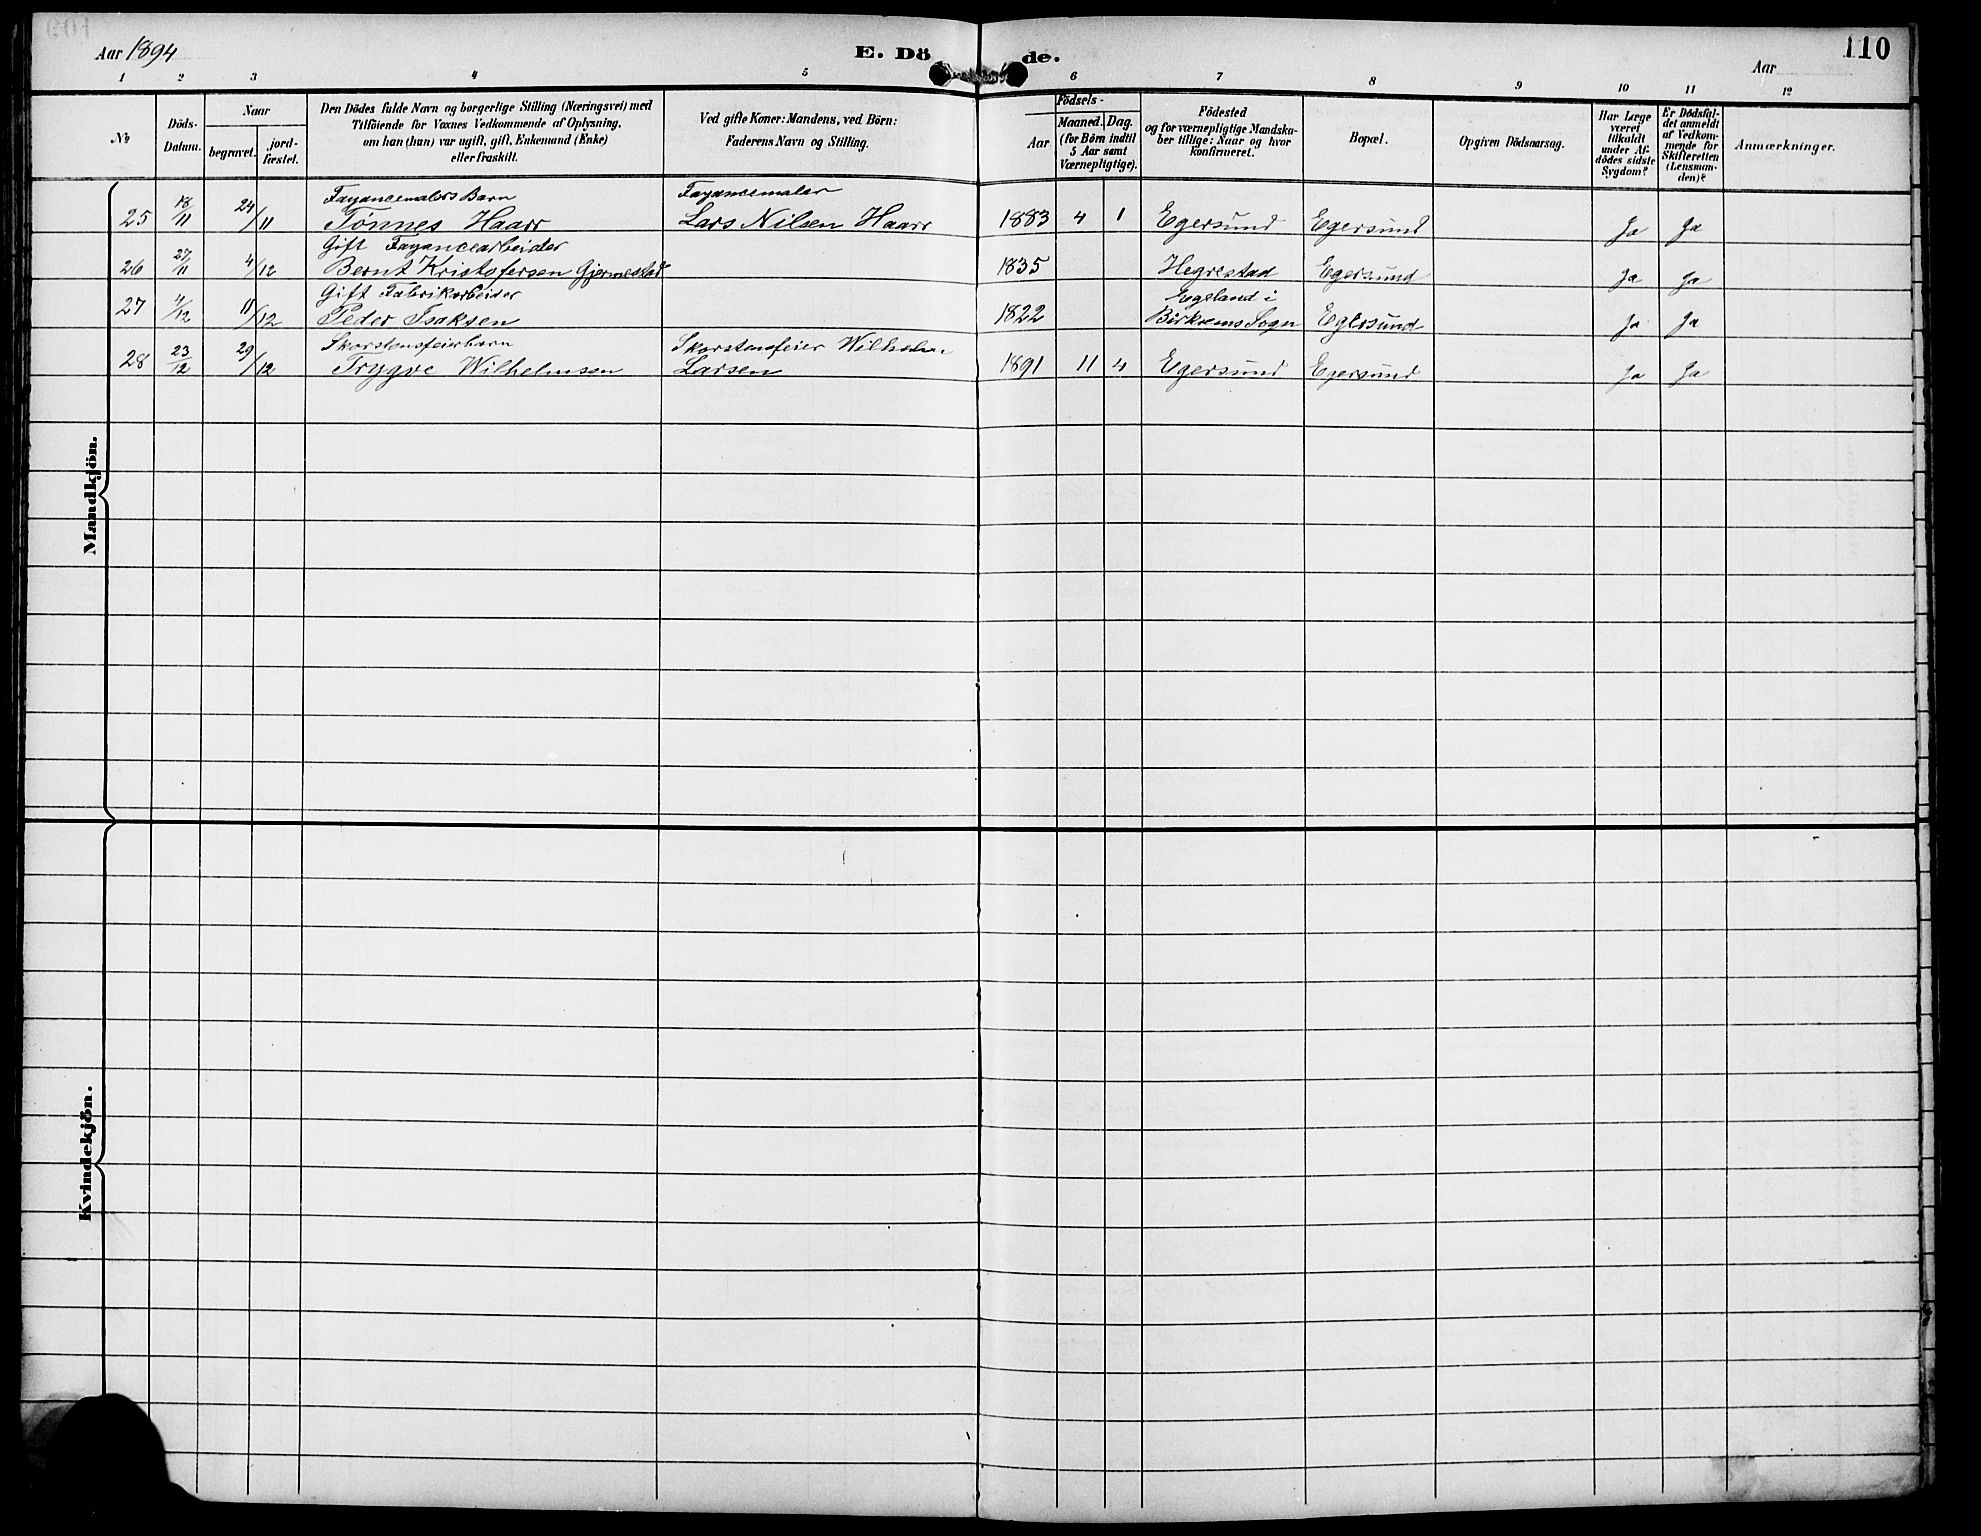 Aar 1894
E. Dö de.
Aar
110
1 2 3 4 5 6 7 8 9 10 11 12
No
Döds-
Datum.
Naar
begravet.
jord-
fæstet.
Den Dödes fulde Navn og borgerlige Stilling (Næringsvei) med
Tilföiende for Voxnes Vedkommende af Oplysning,
om han (hun) var ugift, gift, Enkemand (Enke)
eller fraskilt.
Ved gifte Koner: Mandens, ved Börn:
Faderens Navn og Stilling.
Födsels-
Aar
Maaned. Dag.
(for Börn indtil
5 Aar samt
Værnepligtige).
Födested
og for værnepligtige Mandska-
ber tillige: Naar og hvor
konfirmeret.
Bopæl.
Opgiven Dödsaarsag.
Har Læge
været
tilkaldt
under Af-
dödes sidste
Sygdom?
Er Dödsfal-
det anmeldt
af Vedkom-
mende for
Skifteretten
(Lensman-
den)?
Anmærkninger.
Mandkjön.
Fayancemalers Barn Fayancemaler
25 18/11 24/11 Tønnes Haarr Lars Nilsen Haarr 1883 4 1 Egersund Egersund Ja Ja
Gift Fayancearbeider
26 27/11 4/12 Bernt Kristofersen Gjermestad 1835 Hegrestad Egersund Ja Ja
Gift Fabrikarbeider Egeland i
27 4/12 11/12 Peder Isaksen 1822 Birkrems Sogn Egersund Ja Ja
Skorstensfeierbarn Skorstensfeier Wilhelm
28 23/12 29/12 Trygve Wilhelmsen Larsen 1891 11 4 Egersund Egersund Ja Ja
Kvindekjön.